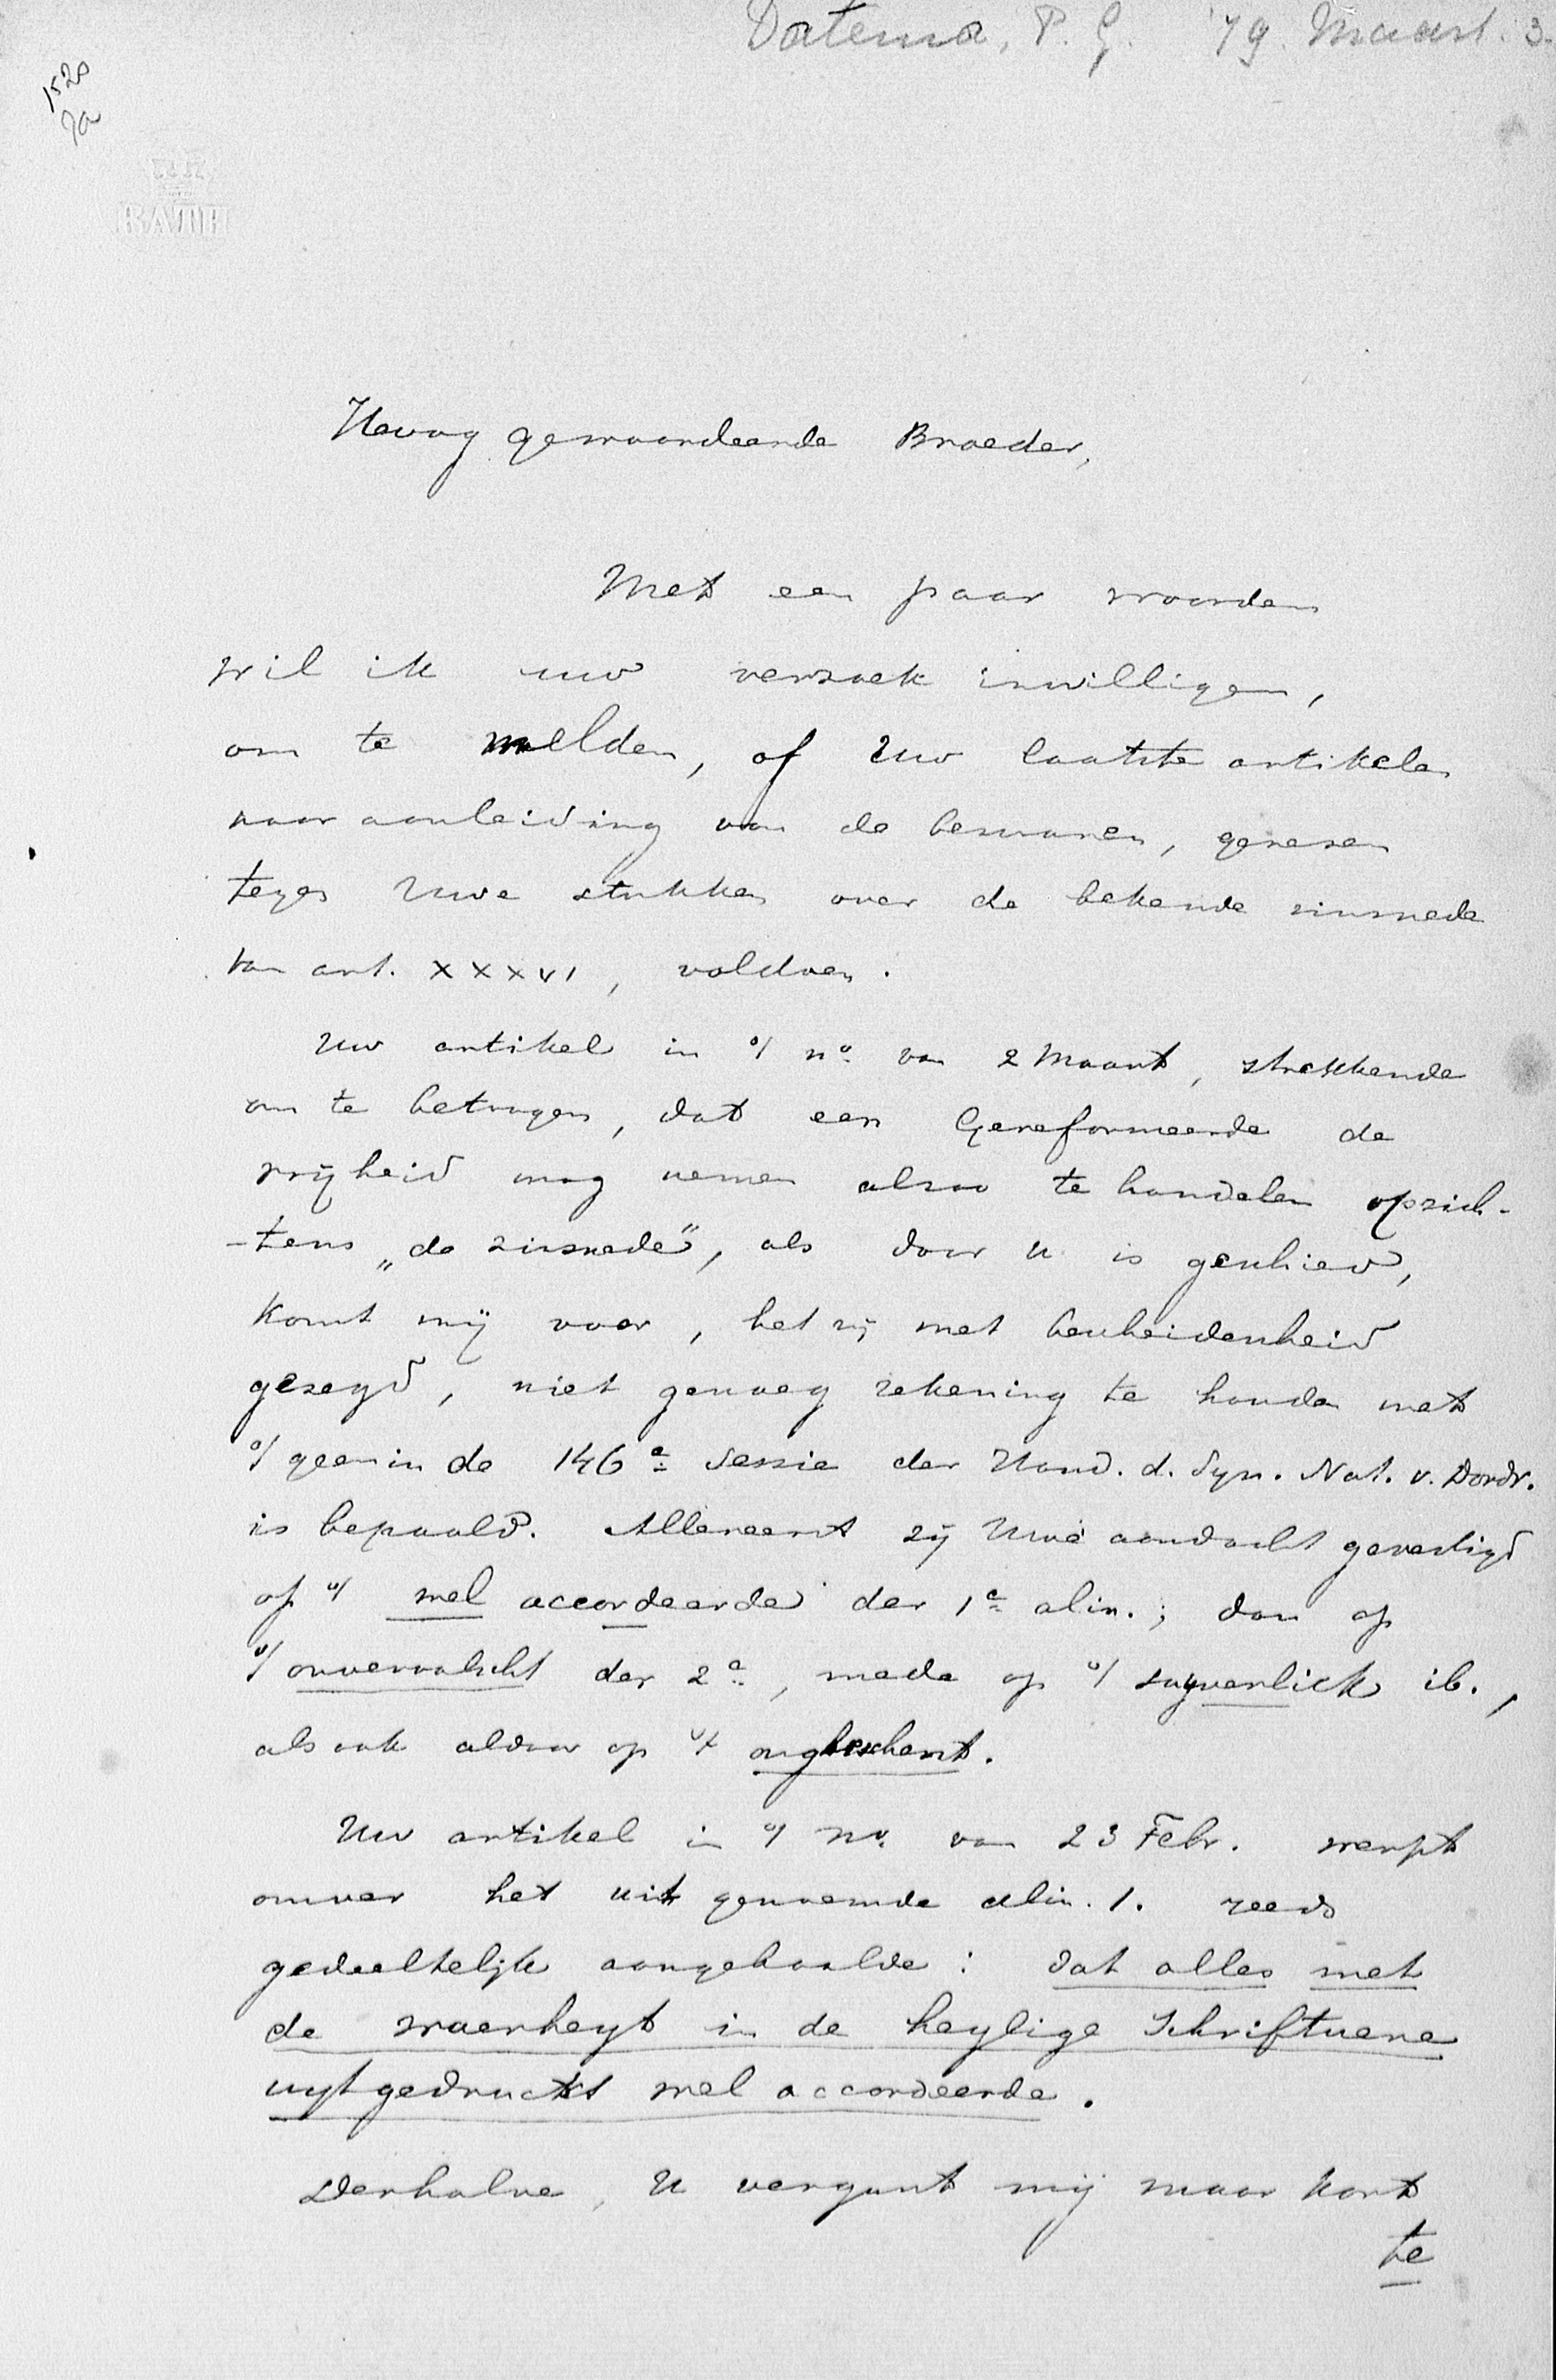 Datema, P. G. '79. Maart. 3.
1520
7a
BATH
Hoog gewaardeerde Broeder,
Met een paar woorden
wil ik uw verzoek inwilligen,
om te melden, of Uw laatste artikelen
naar aanleiding van de bezwaren, gerezen
tegen Uwe stukken over de bekende zinsnede
van art. XXXVI, voldoen.
Uw artikel in 't no. van 2 Maart, strekkende
om te betoogen, dat een Gereformeerde de
vrijheid mag nemen alzoo te handelen opzich-
-tens „de zinsnede", als door U is geschied,
komt mij voor, het zij met bescheidenheid
gezegd, niet genoeg rekening te houden met
't geen in de 146e Sessie der Hand. d. Syn. Nat. v. Dordr.
is bepaald. Allereerst zij Uwe aandacht gevestigd
op 't wel accordeerde der 1e alin.; dan op
't onvervalscht der 2e, mede op 't suyverlick ib.,
als ook aldaar op 't ongheschent.
Uw artikel in 't no. van 23 Febr. werpt
omver het uit genoemde alin. 1. reeds
gedeeltelijk aangehaalde: dat alles met
de waerheyt in de heylige Schriftuere
uytgedruckt wel accordeerde.
Derhalve, U vergunt mij maar kort
te